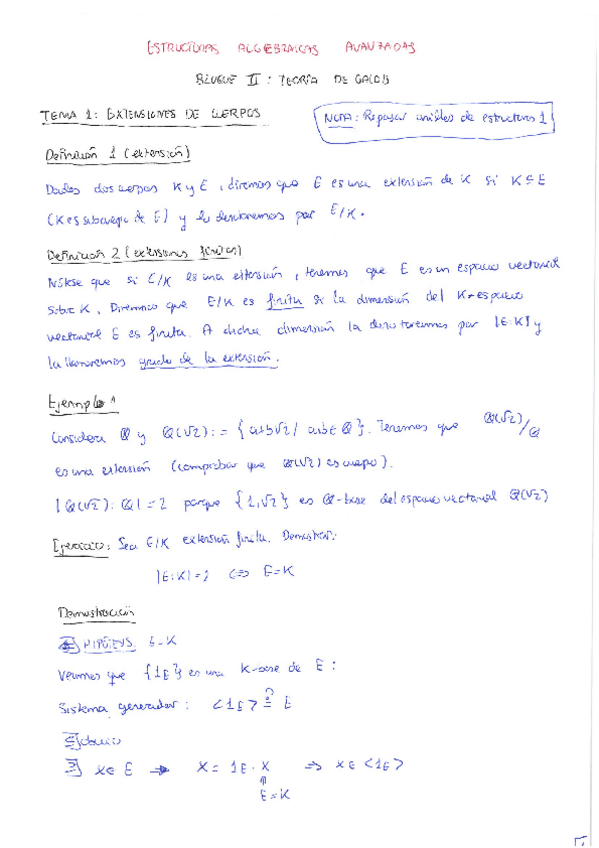 ESTRUCTURAS ALGEBRAICAS AVANZADAS
BLOQUE II : TEORÍA DE GALOIS
TEMA 1: EXTENSIONES DE CUERPOS
NOTA: Repasar anillos de estructuras 1
Definición 1 (extensión)
Dados dos cuerpos K y E, diremos que E es una extensión de K si K⊆E
(K es subcuerpo de E) y lo denotaremos por E/K.
Definición 2 (extensiones finitas)
Nótese que si E/K es una extensión, tenemos que E es un espacio vectorial
sobre K. Diremos que E/K es finita si la dimensión del K-espacio
vectorial E es finita. A dicha dimensión la denotaremos por |E:K| y
la llamaremos grado de la extensión.
Ejemplo 1
Considera ℚ y ℚ(√2) := {a+b√2 / a,b∈ℚ}. Tenemos que ℚ(√2)/ℚ
es una extensión (comprobar que ℚ(√2) es cuerpo).
|ℚ(√2):ℚ| = 2 porque {1,√2} es ℚ-base del espacio vectorial ℚ(√2)
Ejercicio: Sea E/K extensión finita. Demostrar:
|E:K|=1 ⇔ E=K
Demostración
⇐ HIPÓTESIS E=K
Veamos que {1_E} es una K-base de E :
Sistema generador : <1_E> ≟ E
⊆] obvio
⊇] x∈E → x = 1_E · x ⇒ x∈<1_E>
⇑
E=K